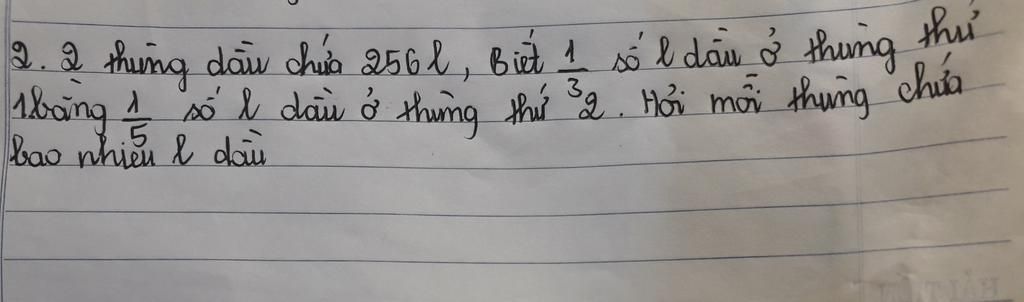 2. 2 thùng dầu chứa 256l, Biết 1/3 số l dầu ở thùng thứ
1 bằng 1/5 số l dầu ở thùng thứ 2. Hỏi mỗi thùng chứa
bao nhiêu l dầu